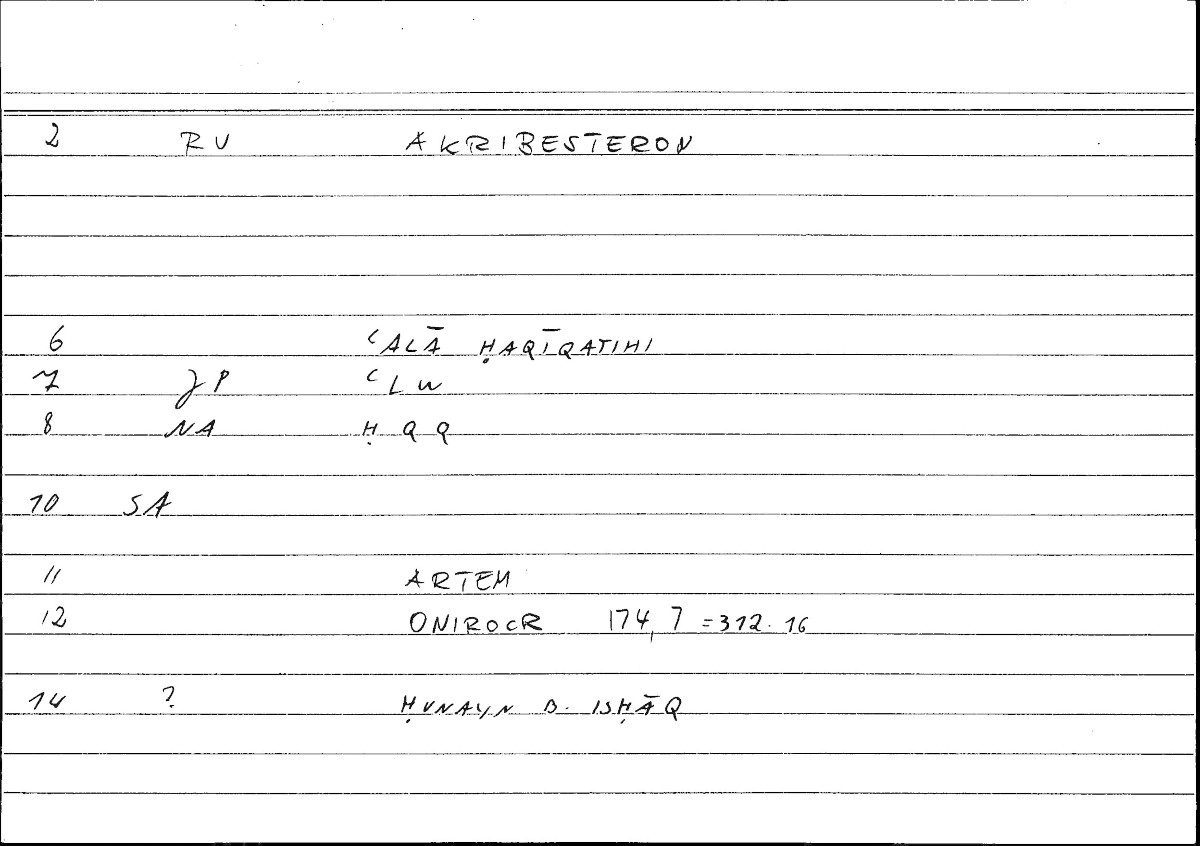 2 RU AKRIBESTERON
6 ʿALĀ ḤAQĪQATIHI
7 JP ʿLW
8 NA ḤQQ
10 SA
11 ARTEM
12 ONIROCR 174,7 =312.16
14 ? ḤUNAYN B. ISḤĀQ